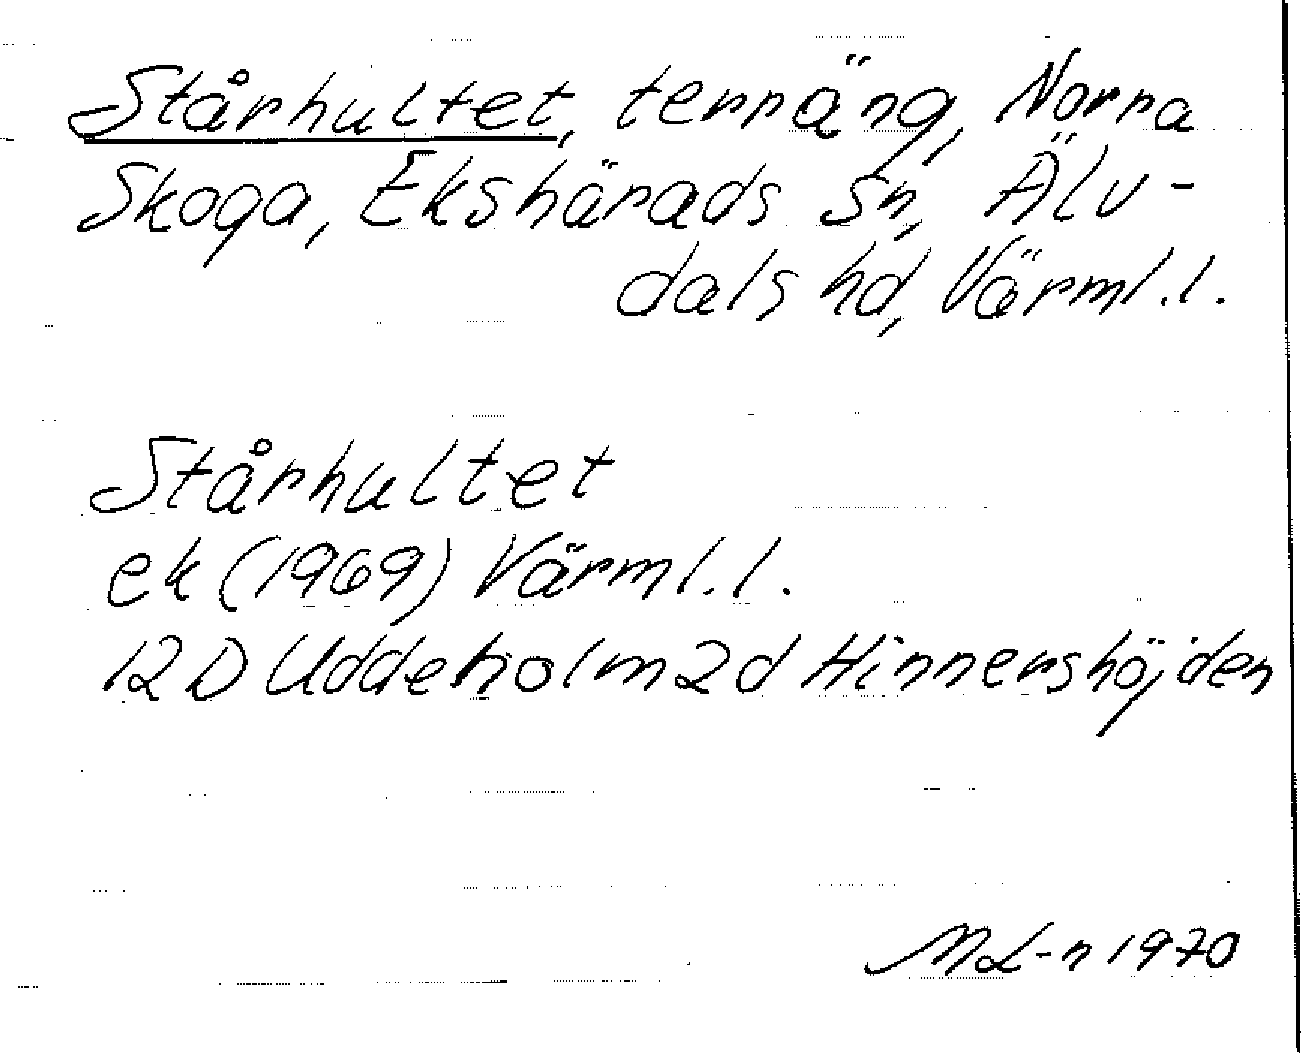 Stårhultet, terräng, Norra
Skoga, Ekshärads sn, Älv-
dals hd, Värml.l.
Stårhultet
ek (1969) Värml.l.
12D Uddeholm 2d Hinnershöjden
ML-n 1970